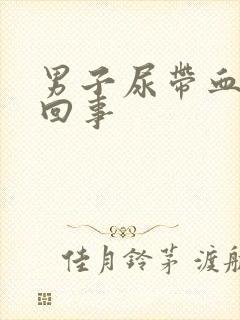 男子尿带血
回事
佳月铃茅 渡航